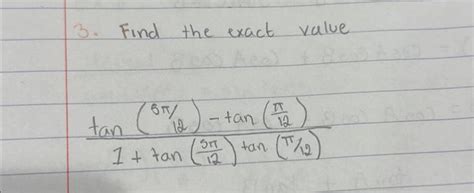 3. Find the exact value
tan (5π/12) - tan (π/12)
1 + tan (5π/12) tan (π/12)